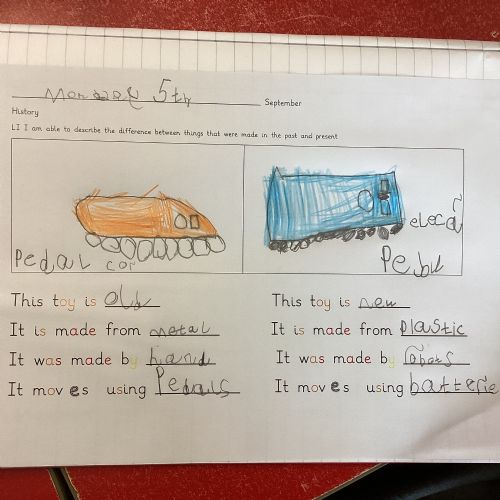 Monday 5th September
History
LI I am able to describe the difference between things that were made in the past and present
Pedal car
This toy is old
It is made from metal
It was made by hand
It moves using Pedals
This toy is new
It is made from plastic
It was made by robots
It moves using batterie